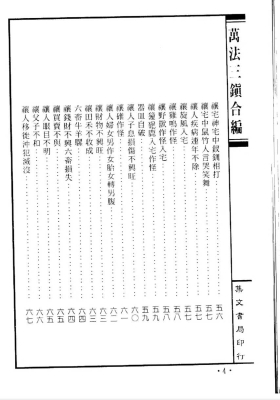 萬法三鎖合編
禳宅神宅中設釧相打………五六
禳宅中鼠竹人言哭笑舞………五七
禳人疾病連年不除………五七
禳旋風入宅………五七
禳雞鳴作怪………五八
禳野獸作怪入宅………五八
禳獐鹿麂入宅作怪………五九
器皿自破………五九
禳人子息損傷不興旺………六〇
禳碓作怪………六一
禳人婦女男作女胎女轉男腹………六二
禳財物不興旺………六三
禳田禾不收成………六三
六畜牛羊鬭………六四
禳錢財不興六畜損失………六四
禳買賣不興………六五
禳人眼目不明………六五
禳父子不和………六六
禳人移徙沖犯滅沒………六七
集文書局印行
·4·